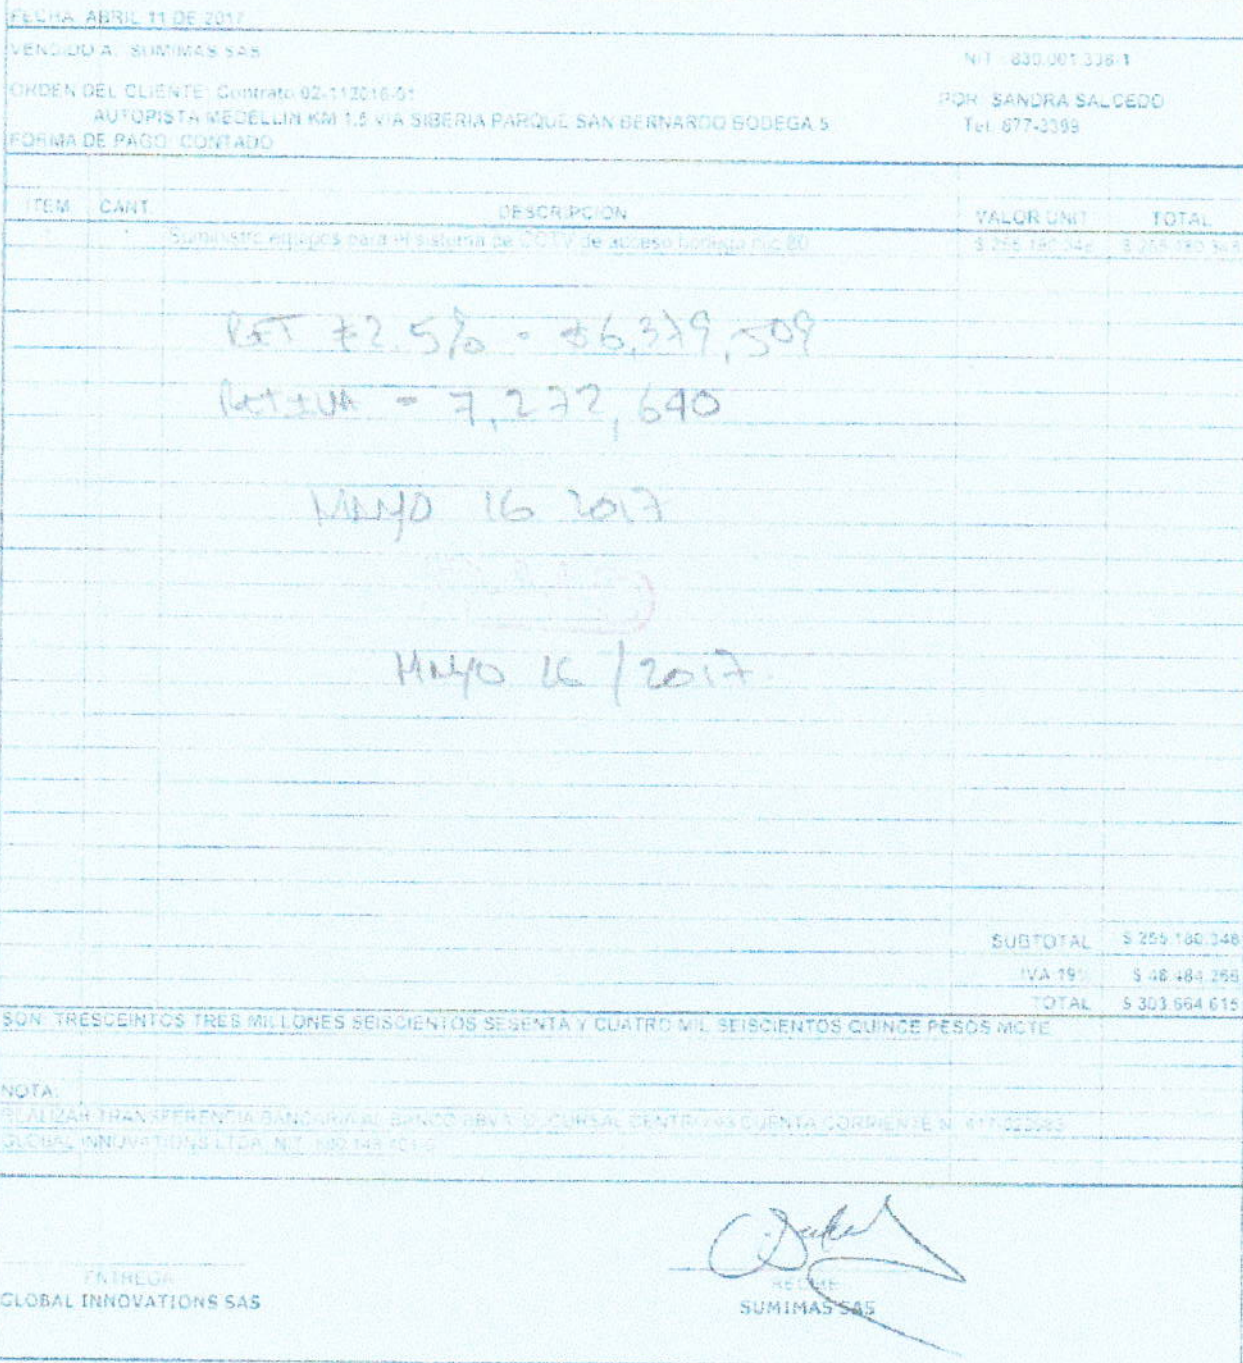 FECHA: ABRIL 11 DE 2017
VENDIDO A: SUMIMAS SAS
NIT: 830.001.338-1
ORDEN DEL CLIENTE: Contrato 02-112016-01
POR: SANDRA SALCEDO
AUTOPISTA MEDELLIN KM 1.5 VIA SIBERIA PARQUE SAN BERNARDO BODEGA 5
Tel. 877-3399
FORMA DE PAGO: CONTADO
ITEM CANT. DESCRIPCION VALOR UNIT TOTAL
Suministro equipos para el sistema de CCTV de acceso bodega $ 255.180.348 $ 255.180.348
RET 2.5% = $6,379,509
Ret IVA = 7,272,640
MAYO 16 2017
MAYO 16 / 2017
SUBTOTAL $ 255.180.348
IVA 19% $ 48.484.266
TOTAL $ 303.664.615
SON: TRESCEINTOS TRES MILLONES SEISCIENTOS SESENTA Y CUATRO MIL SEISCIENTOS QUINCE PESOS MCTE
NOTA:
REALIZAR TRANSFERENCIA BANCARIA AL BANCO BBVA SUCURSAL CENTRO CUENTA CORRIENTE N.
GLOBAL INNOVATIONS LTDA. NIT.
ENTREGA
RECIBE
GLOBAL INNOVATIONS SAS
SUMIMAS SAS